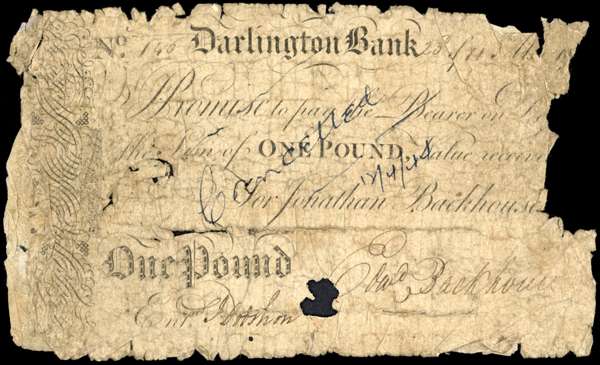 No. Darlington Bank
Promise to pay the Bearer on
the Sum of ONE POUND. Value receive
Cancelled
12/4/48
For Jonathan Backhouse
One Pound
Edwd Backhouse
Entd